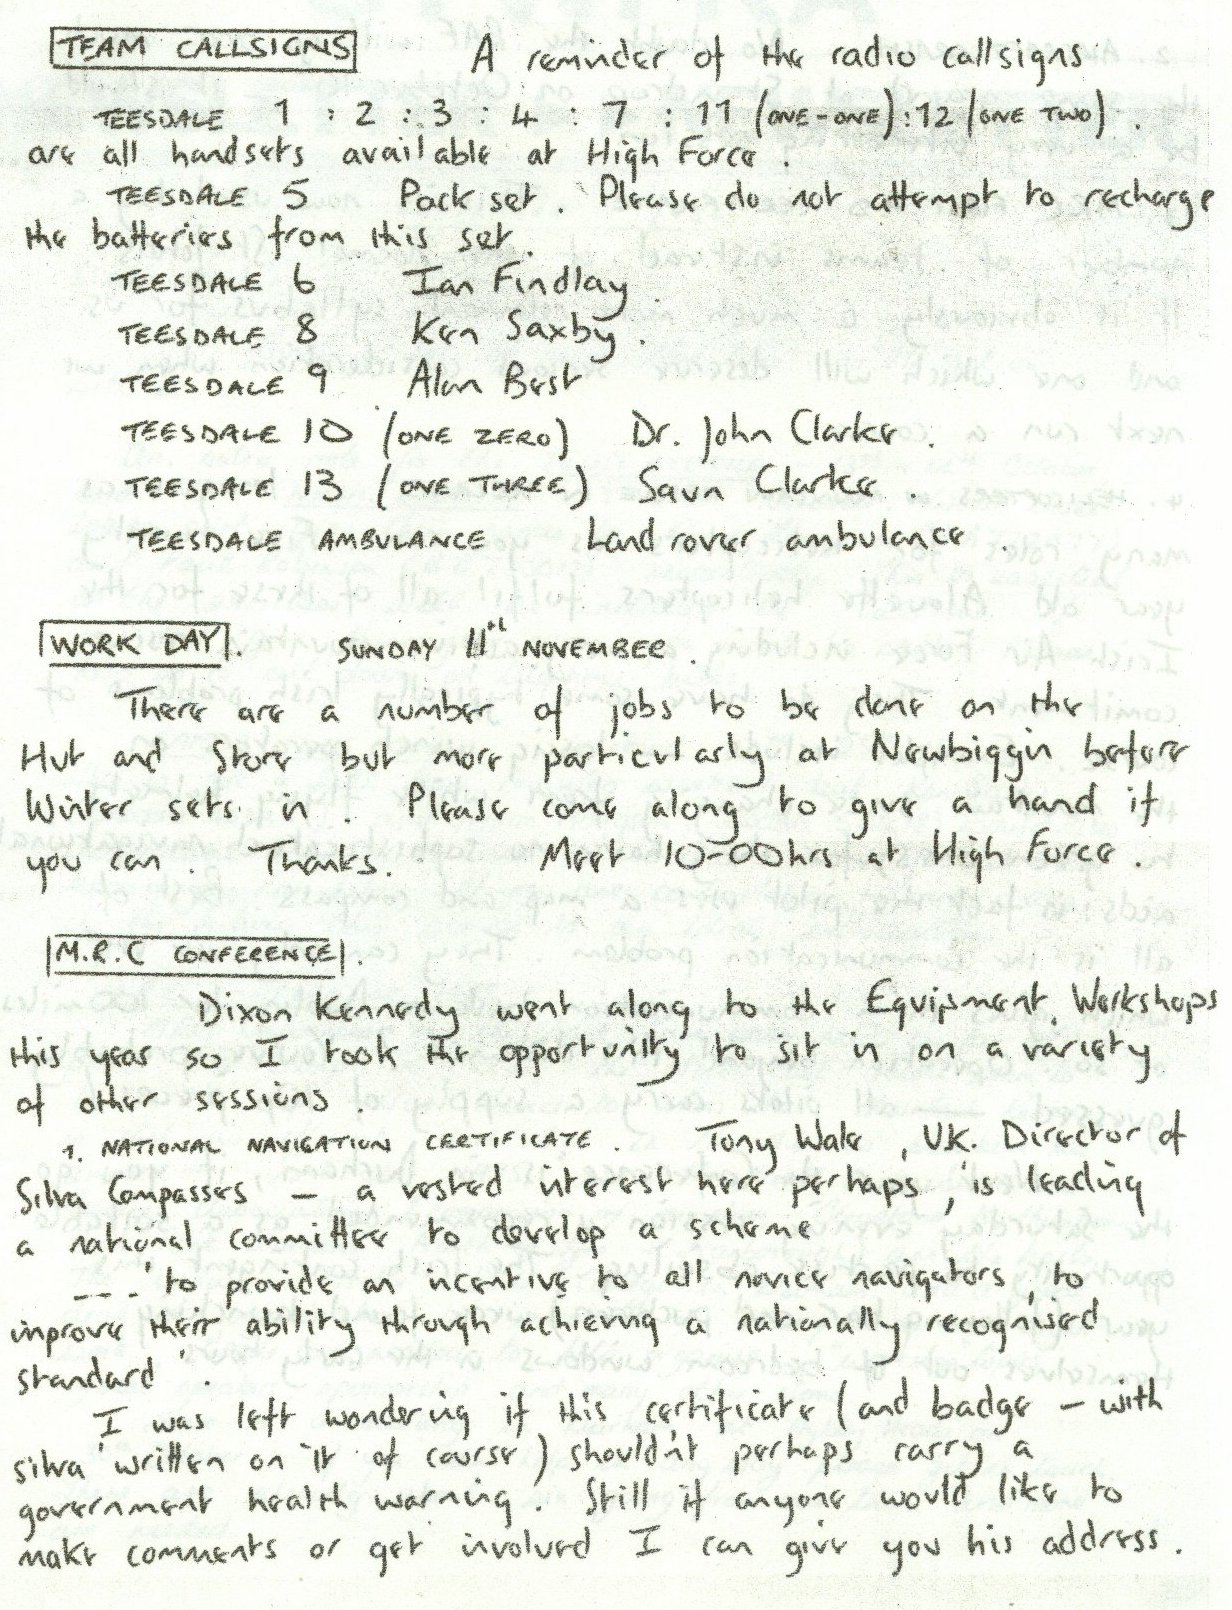 TEAM CALLSIGNS   A reminder of the radio callsigns
TEESDALE 1 : 2 : 3 : 4 : 7 : 11 (ONE-ONE) : 12 (ONE TWO) .
are all handsets available at High Force .
TEESDALE 5   Pack set . Please do not attempt to recharge
the batteries from this set.
TEESDALE 6   Ian Findlay .
TEESDALE 8   Ken Saxby .
TEESDALE 9   Alan Best
TEESDALE 10 (ONE ZERO)   Dr. John Clarke .
TEESDALE 13 (ONE THREE)   Savn Clarke .
TEESDALE AMBULANCE   Land rover ambulance .
WORK DAY .   SUNDAY 11th NOVEMBER .
There are a number of jobs to be done on the
Hut and Store but more particularly at Newbiggin before
Winter sets in . Please come along to give a hand if
you can . Thanks.   Meet 10-00hrs at High Force .
M.R.C CONFERENCE .
Dixon Kennedy went along to the Equipment Workshops
this year so I took the opportunity to sit in on a variety
of other sessions .
1. NATIONAL NAVIGATION CERTIFICATE .   Tony Wale , UK. Director of
Silva Compasses — a vested interest here perhaps , is leading
a national committee to develop a scheme
---'to provide an incentive to all novice navigators, to
improve their ability through achieving a nationally recognised
standard' .
I was left wondering if this certificate (and badge — with
silva written on it of course) shouldn't perhaps carry a
government health warning . Still if anyone would like to
make comments or get involved I can give you his address .